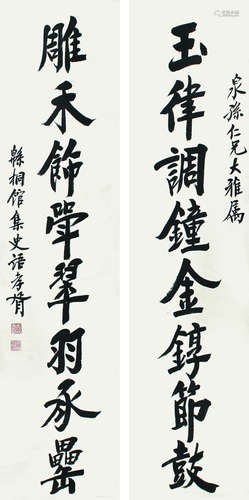 泉孫仁兄大雅属
玉律調鐘金錞節鼓
雕禾飾斝翠羽承罍
緜桐館集史語孝胥